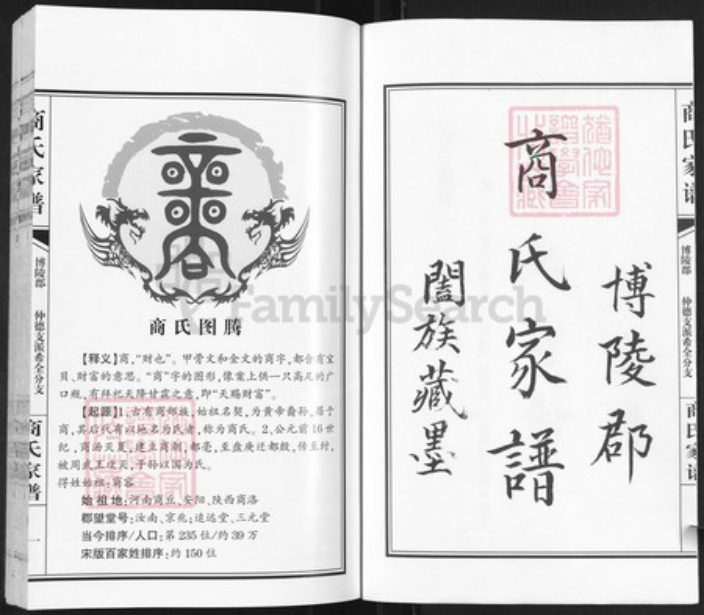 博陵郡
商氏家譜
闔族藏墨
商氏家譜
博陵郡
仲德支派希全分支
商氏家譜
商氏图腾
【释义】商,“财也”。甲骨文和金文的商字,都含有宝
贝、财富的意思。“商”字的图形,像案上供一只高足的广
口瓶,有拜祀天降甘露之意,即“天赐财富”。
【起源】1、古有商部族,始祖名契,为黄帝裔孙,居于
商,其后代有以地名为氏者,称为商氏。2、公元前16世
纪,商汤灭夏,建立商朝,都亳,至盘庚迁都殷,传至纣,
被周武王攻灭,子孙以国为氏。
得姓始祖:商容
始祖地:河南商丘、安阳、陕西商洛
郡望堂号:汝南、京兆;逺远堂、三元堂
当今排序/人口:第235位/约39万
宋版百家姓排序:约150位
商氏家譜
博陵郡
仲德支派希全分支
商氏家譜
一
FamilySearch